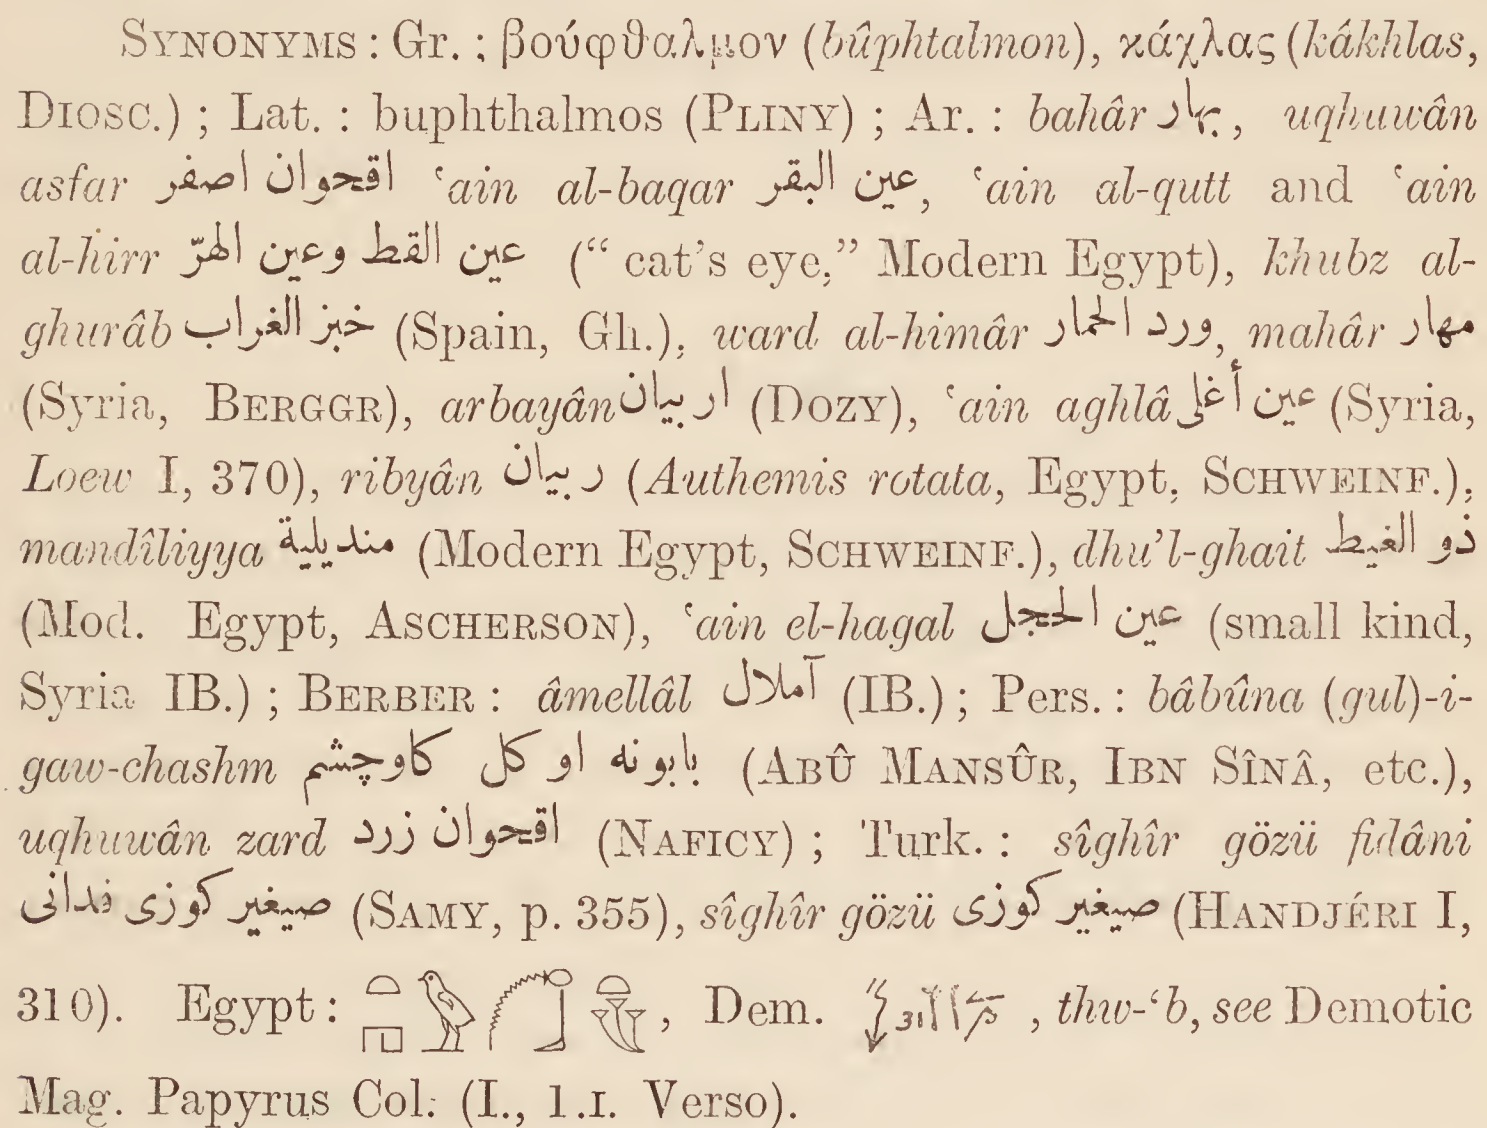 SYNONYMS : Gr. ; βούφθαλμον (bûphtalmon), κάχλας (kâkhlas,
DIOSC.) ; Lat. : buphthalmos (PLINY) ; Ar. : bahâr بهار, uqhuwân
asfar اقحوان اصفر ʿain al-baqar عين البقر, ʿain al-qutt and ʿain
al-hirr عين القط وعين الهرّ (“ cat’s eye,” Modern Egypt), khubz al-
ghurâb خبز الغراب (Spain, Gh.), ward al-himâr ورد الحمار, mahâr مهار
(Syria, BERGGR), arbayân اربيان (DOZY), ʿain aghlâ عين أغلى (Syria,
Loew I, 370), ribyân ربيان (Authemis rotata, Egypt, SCHWEINF.),
mandîliyya منديلية (Modern Egypt, SCHWEINF.), dhu’l-ghait ذو الغيط
(Mod. Egypt, ASCHERSON), ʿain el-hagal عين الحجل (small kind,
Syria IB.) ; BERBER : âmellâl آملال (IB.) ; Pers. : bâbûna (gul)-i-
gaw-chashm بابونه او كل كاوچشم (ABÛ MANSÛR, IBN SÎNÂ, etc.),
uqhuwân zard اقحوان زرد (NAFICY) ; Turk. : sîghîr gözü fidâni
صيغير كوزى فدانى (SAMY, p. 355), sîghîr gözü صيغير كوزى (HANDJÉRI I,
310). Egypt : , Dem. , thw-ʿb, see Demotic
Mag. Papyrus Col. (I., 1.I. Verso).